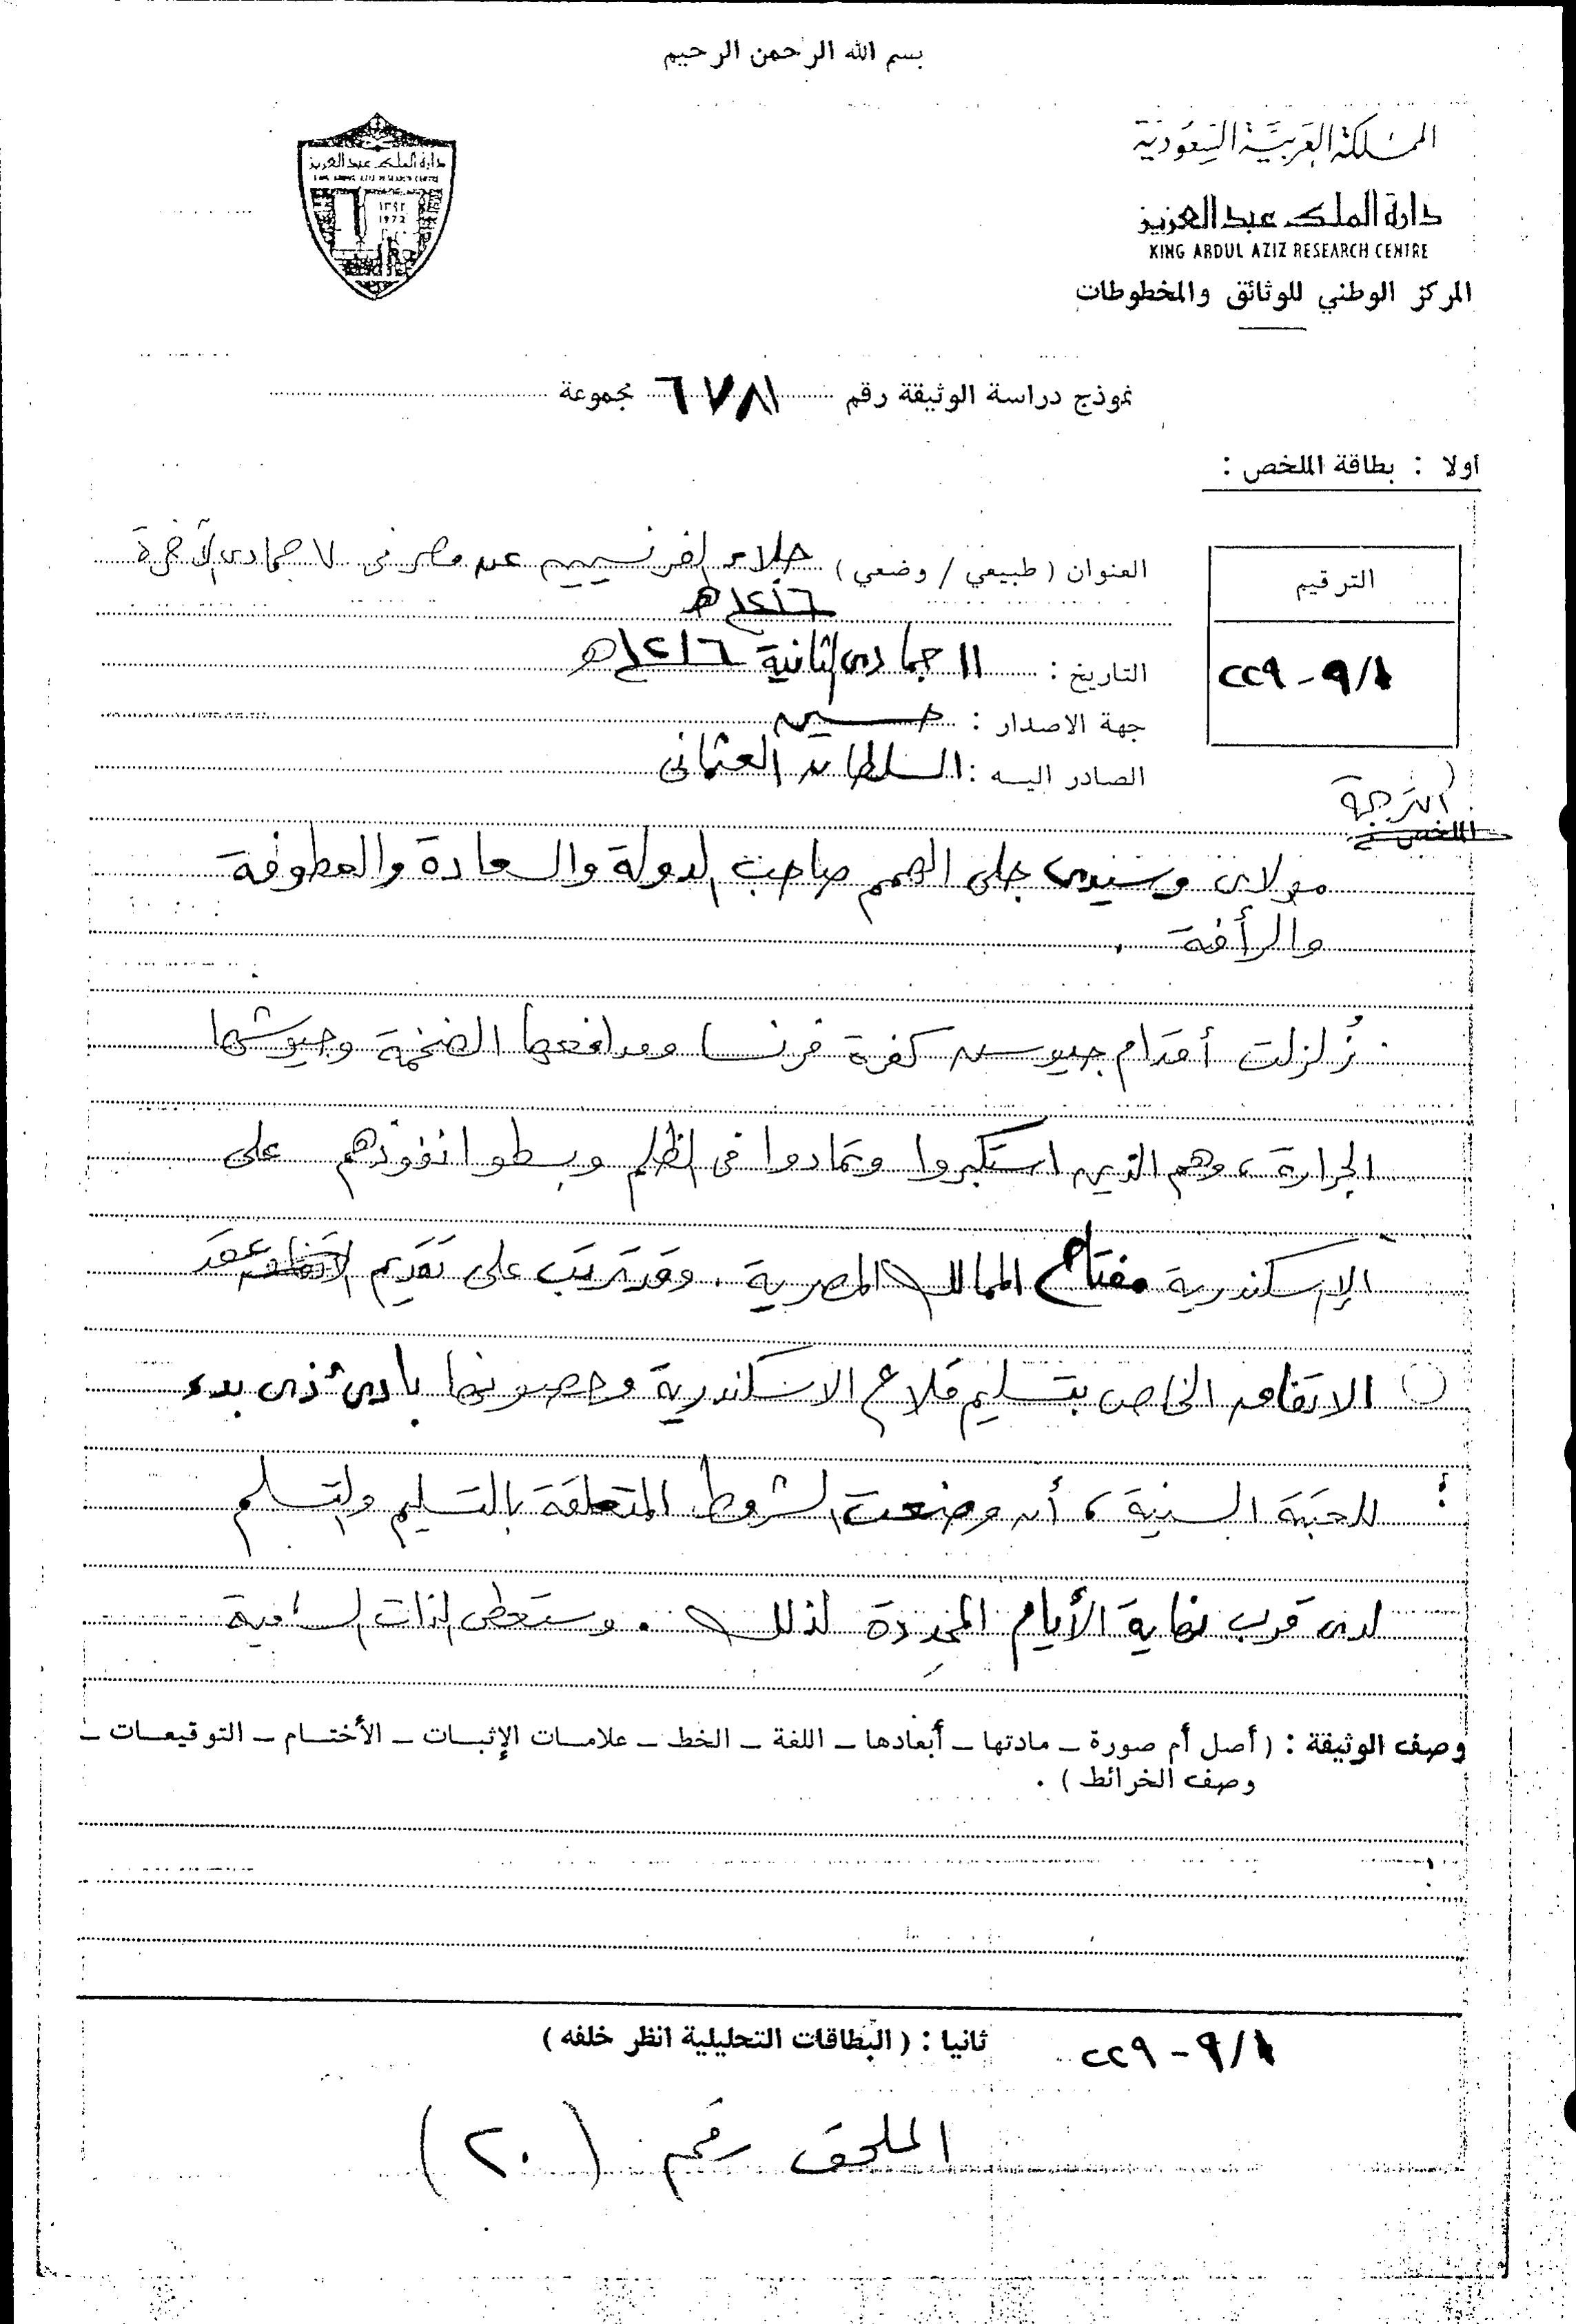 بسم الله الرحمن الرحيم
المملكة العربية السعودية
دارة الملك عبد العزيز
KING ABDUL AZIZ RESEARCH CENTRE
المركز الوطني للوثائق والمخطوطات
دارة الملك عبد العزيز
KING ABDUL AZIZ RESEARCH CENTRE
١٣٩٢
1972
نموذج دراسة الوثيقة رقم ٦٧٨١ مجموعة
أولا : بطاقة الملخص :
الترقيم
١/٩ - ٢٢٩
العنوان ( طبيعي / وضعي ) جلاء الفرنسيين عن مصر في ٧ جمادى الآخرة
١٢١٦ هـ
التاريخ : ١١ جمادى الثانية ١٢١٦ هـ
جهة الاصدار : حسين
الصادر اليه : السلطان العثماني
الترجمة
الملخص :
مولاي وسيدي جلي الهمم صاحب الدولة والسعادة والعطوفة
والرأفة .
زُلزلت أقدام جيوش كفرة فرنسا ومدافعها الضخمة وجيوشها
الجرارة ، وهم الذين استكبروا وتمادوا في الظلم وبسطوا نفوذهم على
الإسكندرية مفتاح الممالك المصرية . وقد ترتب على تقديم عقد
الاتفاق الخاص بتسليم قلاع الاسكندرية وحصونها بادئ ذي بدء
للعتبة السنية ، أن وضعت الشروط المتعلقة بالتسليم والتسلم
لدى قرب نهاية الأيام المحددة لذلك . وستعطى الذات السامية
وصف الوثيقة : ( أصل أم صورة – مادتها – أبعادها – اللغة – الخط – علامات الإثبات – الأختام – التوقيعات –
وصف الخرائط ) .
١/٩ - ٢٢٩ ثانيا : ( البطاقات التحليلية انظر خلفه )
الملحق رقم ( ٢٠ )